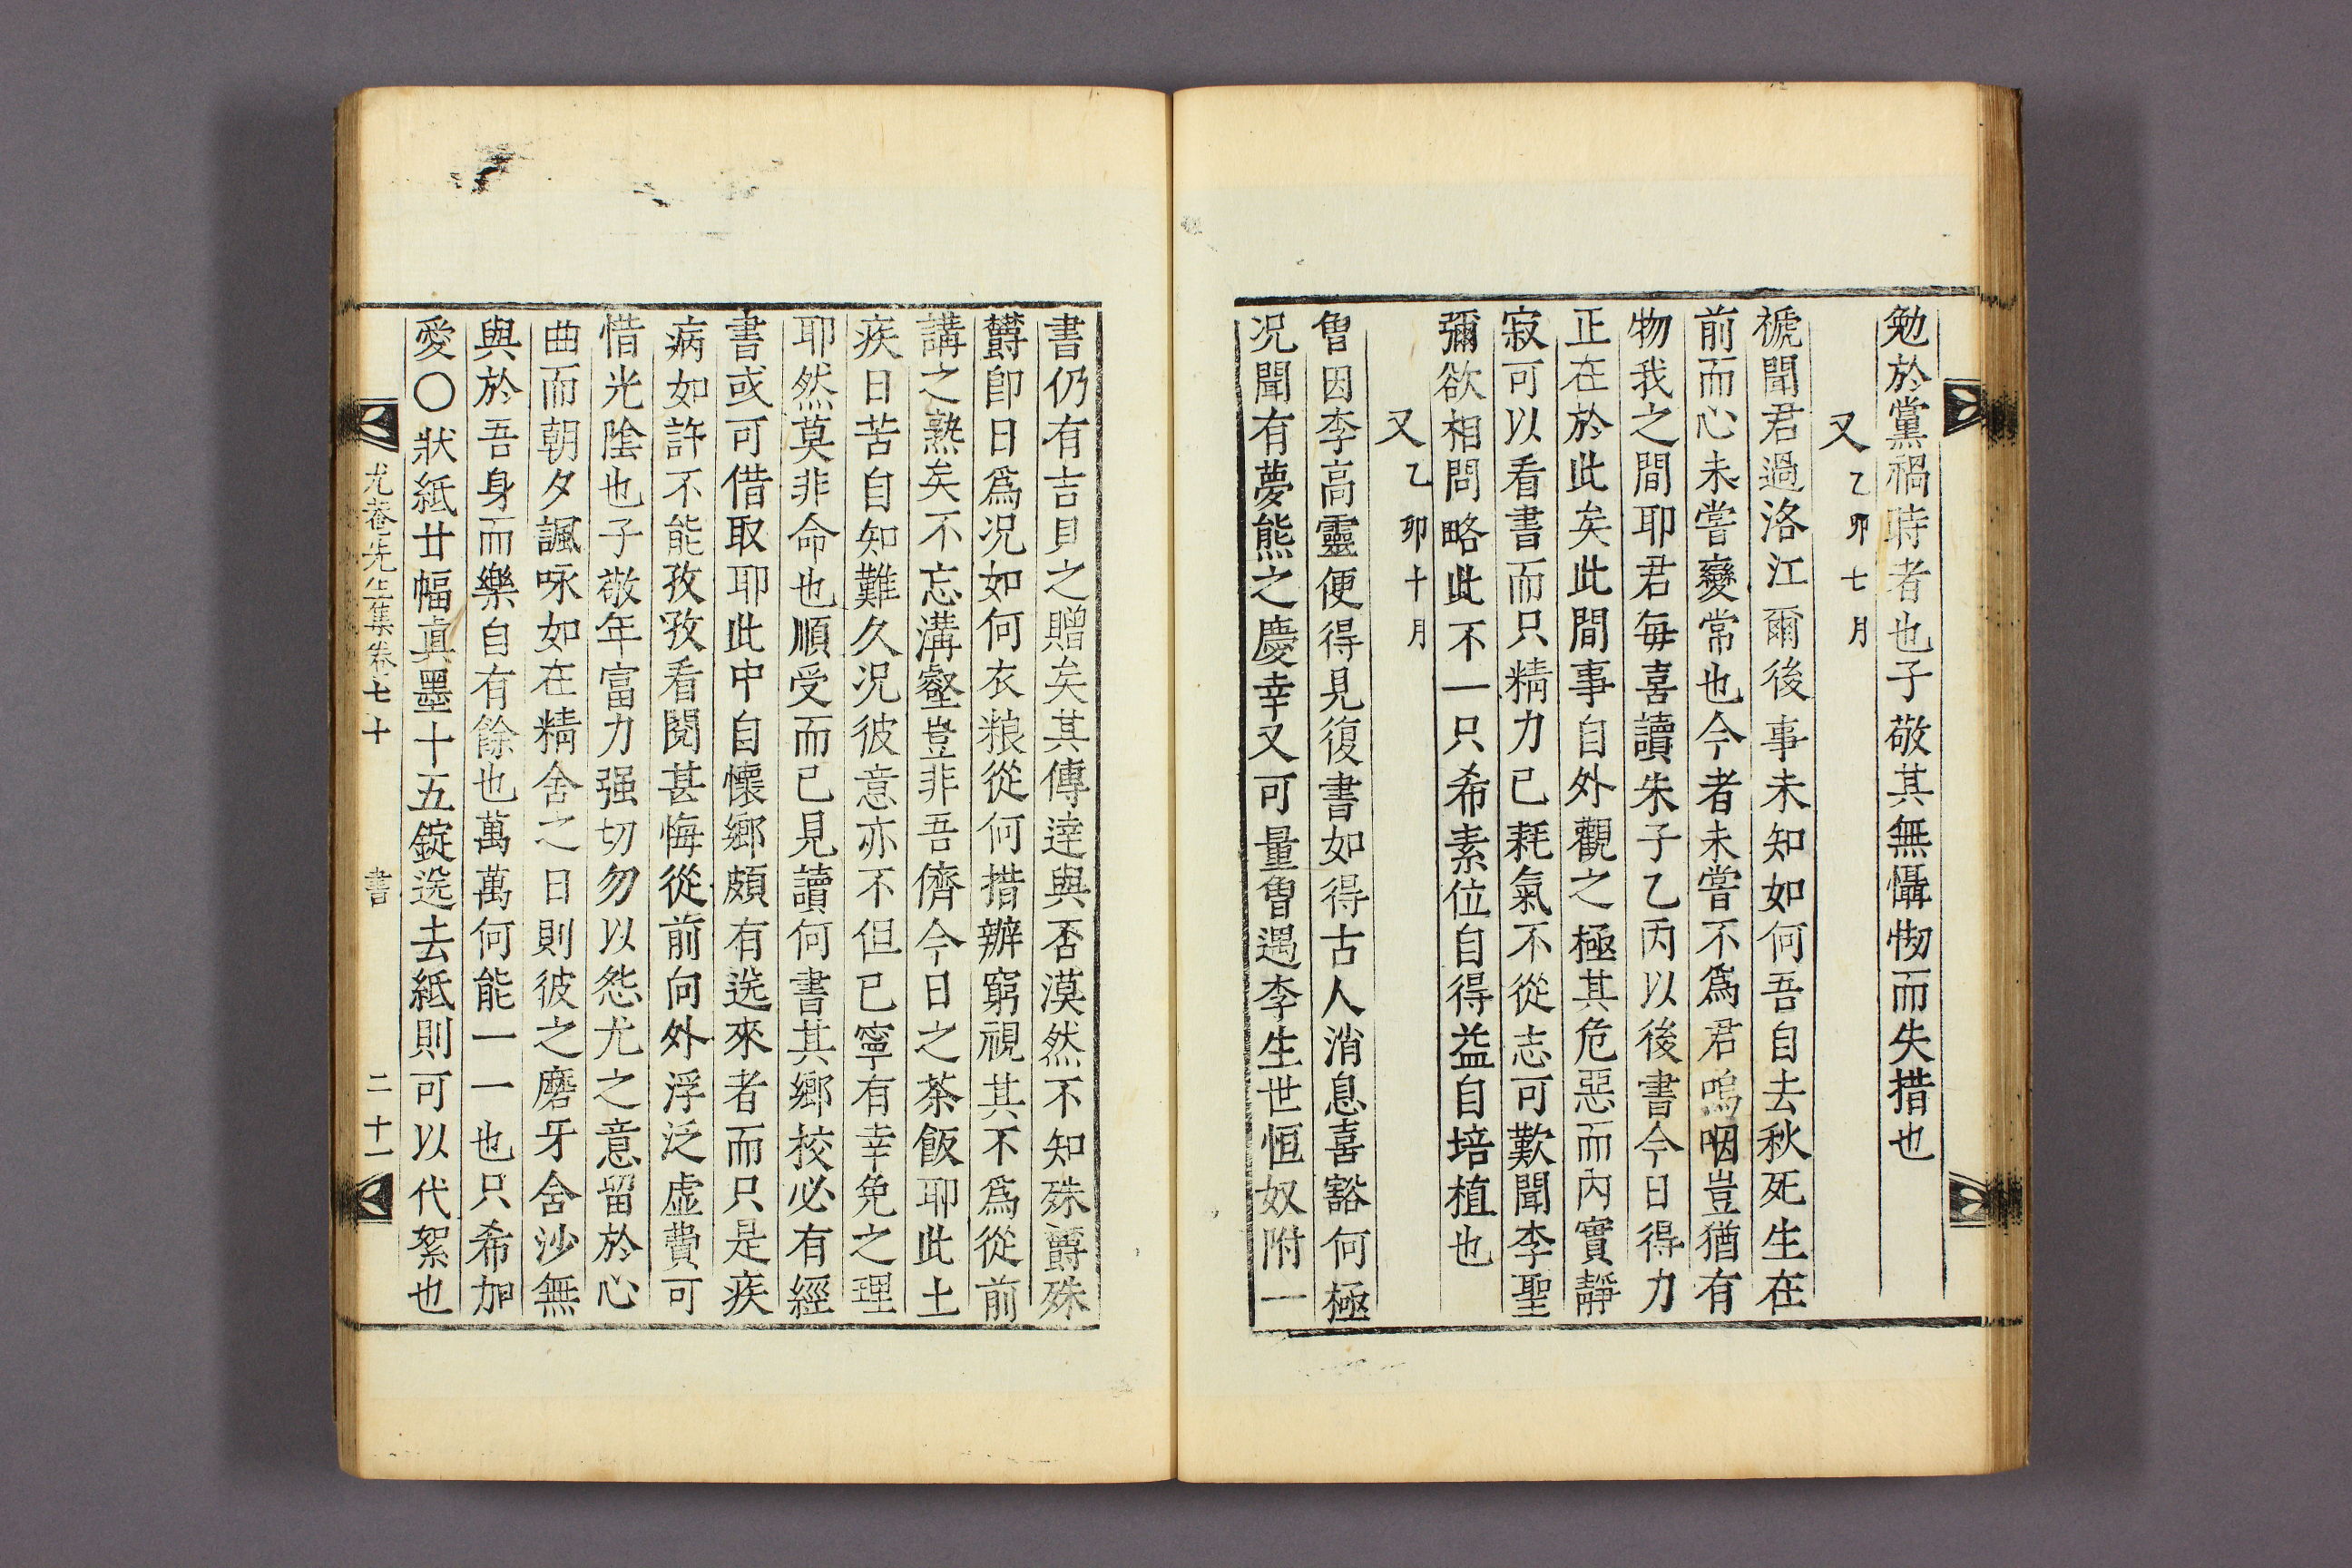 勉於黨禍時者也子敬其無懾怮而失措也
又乙卯七月
褫聞君過洛江爾後事未知如何吾自去秋死生在
前而心未嘗變常也今者未嘗不爲君嗚咽豈猶有
物我之間耶君每喜讀朱子乙丙以後書今日得力
正在於此矣此間事自外觀之極其危惡而內實靜
寂可以看書而只精力已耗氣不從志可歎聞李聖
彌欲相問略此不一只希素位自得益自培植也
又乙卯十月
曾因李高靈便得見復書如得古人消息喜豁何極
况聞有夢熊之慶幸又可量曾遇李生世恒奴附一
書仍有吉貝之贈矣其傳達與否漠然不知殊欝殊
欝卽日爲况如何衣粮從何措辦窮視其不爲從前
講之熟矣不忘溝壑豈非吾儕今日之茶飯耶此土
疾日苦自知難久况彼意亦不但已寧有幸免之理
耶然莫非命也順受而已見讀何書其鄕校必有經
書或可借取耶此中自懷鄕頗有送來者而只是疾
病如許不能孜孜看閱甚悔從前向外浮泛虛費可
惜光陰也子敬年富力强切勿以怨尤之意留於心
曲而朝夕諷咏如在精舍之日則彼之磨牙舍沙無
與於吾身而樂自有餘也萬萬何能一一也只希加
愛○狀紙廿幅眞墨十五錠送去紙則可以代絮也
尤菴先生集卷七十 書 二十一